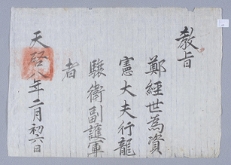 教旨
鄭經世為資
憲大夫行龍
驤衛副護軍
者
天啓八年二月初六日